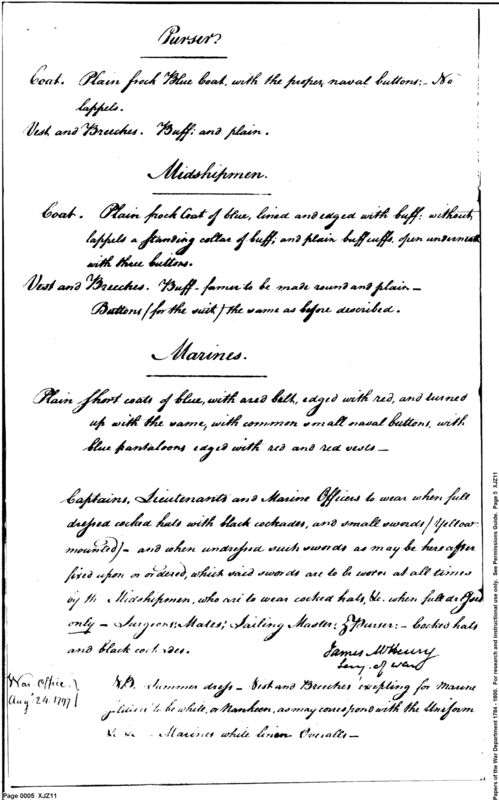 Purser.
Coat. Plain frock Blue Coat, with the proper naval buttons:- No
lappels.
Vest and Breeches. Buff: and plain.
Midshipmen.
Coat. Plain frock Coat of blue, lined and edged with buff: without
lappels a standing collar of buff; and plain buff cuffs, open underneath
with three buttons.
Vest and Breeches. Buff - former to be made round and plain -
Buttons (for the suit) the same as before described.
Marines.
Plain short coats of blue, with a red belt, edged with red, and turned
up with the same, with common small naval buttons, with
blue pantaloons edged with red and red vests -
Captains, Lieutenants and Marine Officers to wear when full
dressed cocked hats with black cockades, and small swords (yellow
mounted) - and when undressed such swords as may be hereafter
fixed upon or ordered, which said swords are to be worn at all times
by the Midshipmen, who are to wear cocked hats, &c. when full dressed
only - Surgeons; Mates; Sailing Master; & Purser:- Cocked hats
and black cockades.
James McHenry
Secy. of war
War Office
Augt. 24. 1797
NB. Summer dress - Vest and Breeches excepting for Marine
to be white, or Nankeen, as may correspond with the Uniform
&c. &c. - Marines white linen Overalls -
Page 0005 XJZ11
Papers of the War Department 1784 - 1800. For research and instructional use only. See Permissions Guide. Page 5 XJZ11